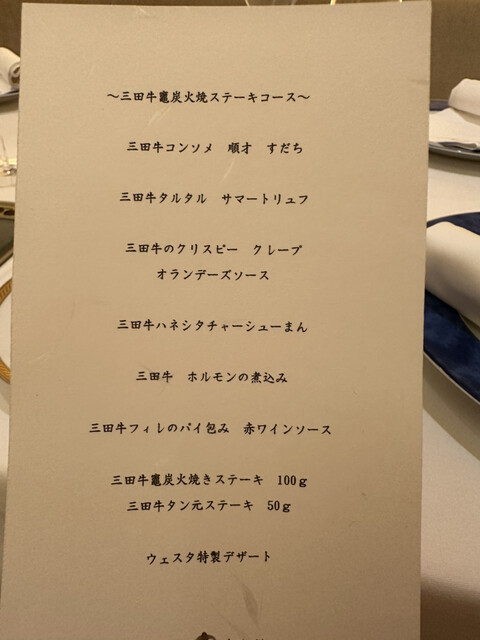 ～三田牛竈炭火焼ステーキコース～
三田牛コンソメ　順才　すだち
三田牛タルタル　サマートリュフ
三田牛のクリスピー　クレープ
オランデーズソース
三田牛ハネシタチャーシューまん
三田牛　ホルモンの煮込み
三田牛フィレのパイ包み　赤ワインソース
三田牛竈炭火焼きステーキ　100g
三田牛タン元ステーキ　50g
ウェスタ特製デザート